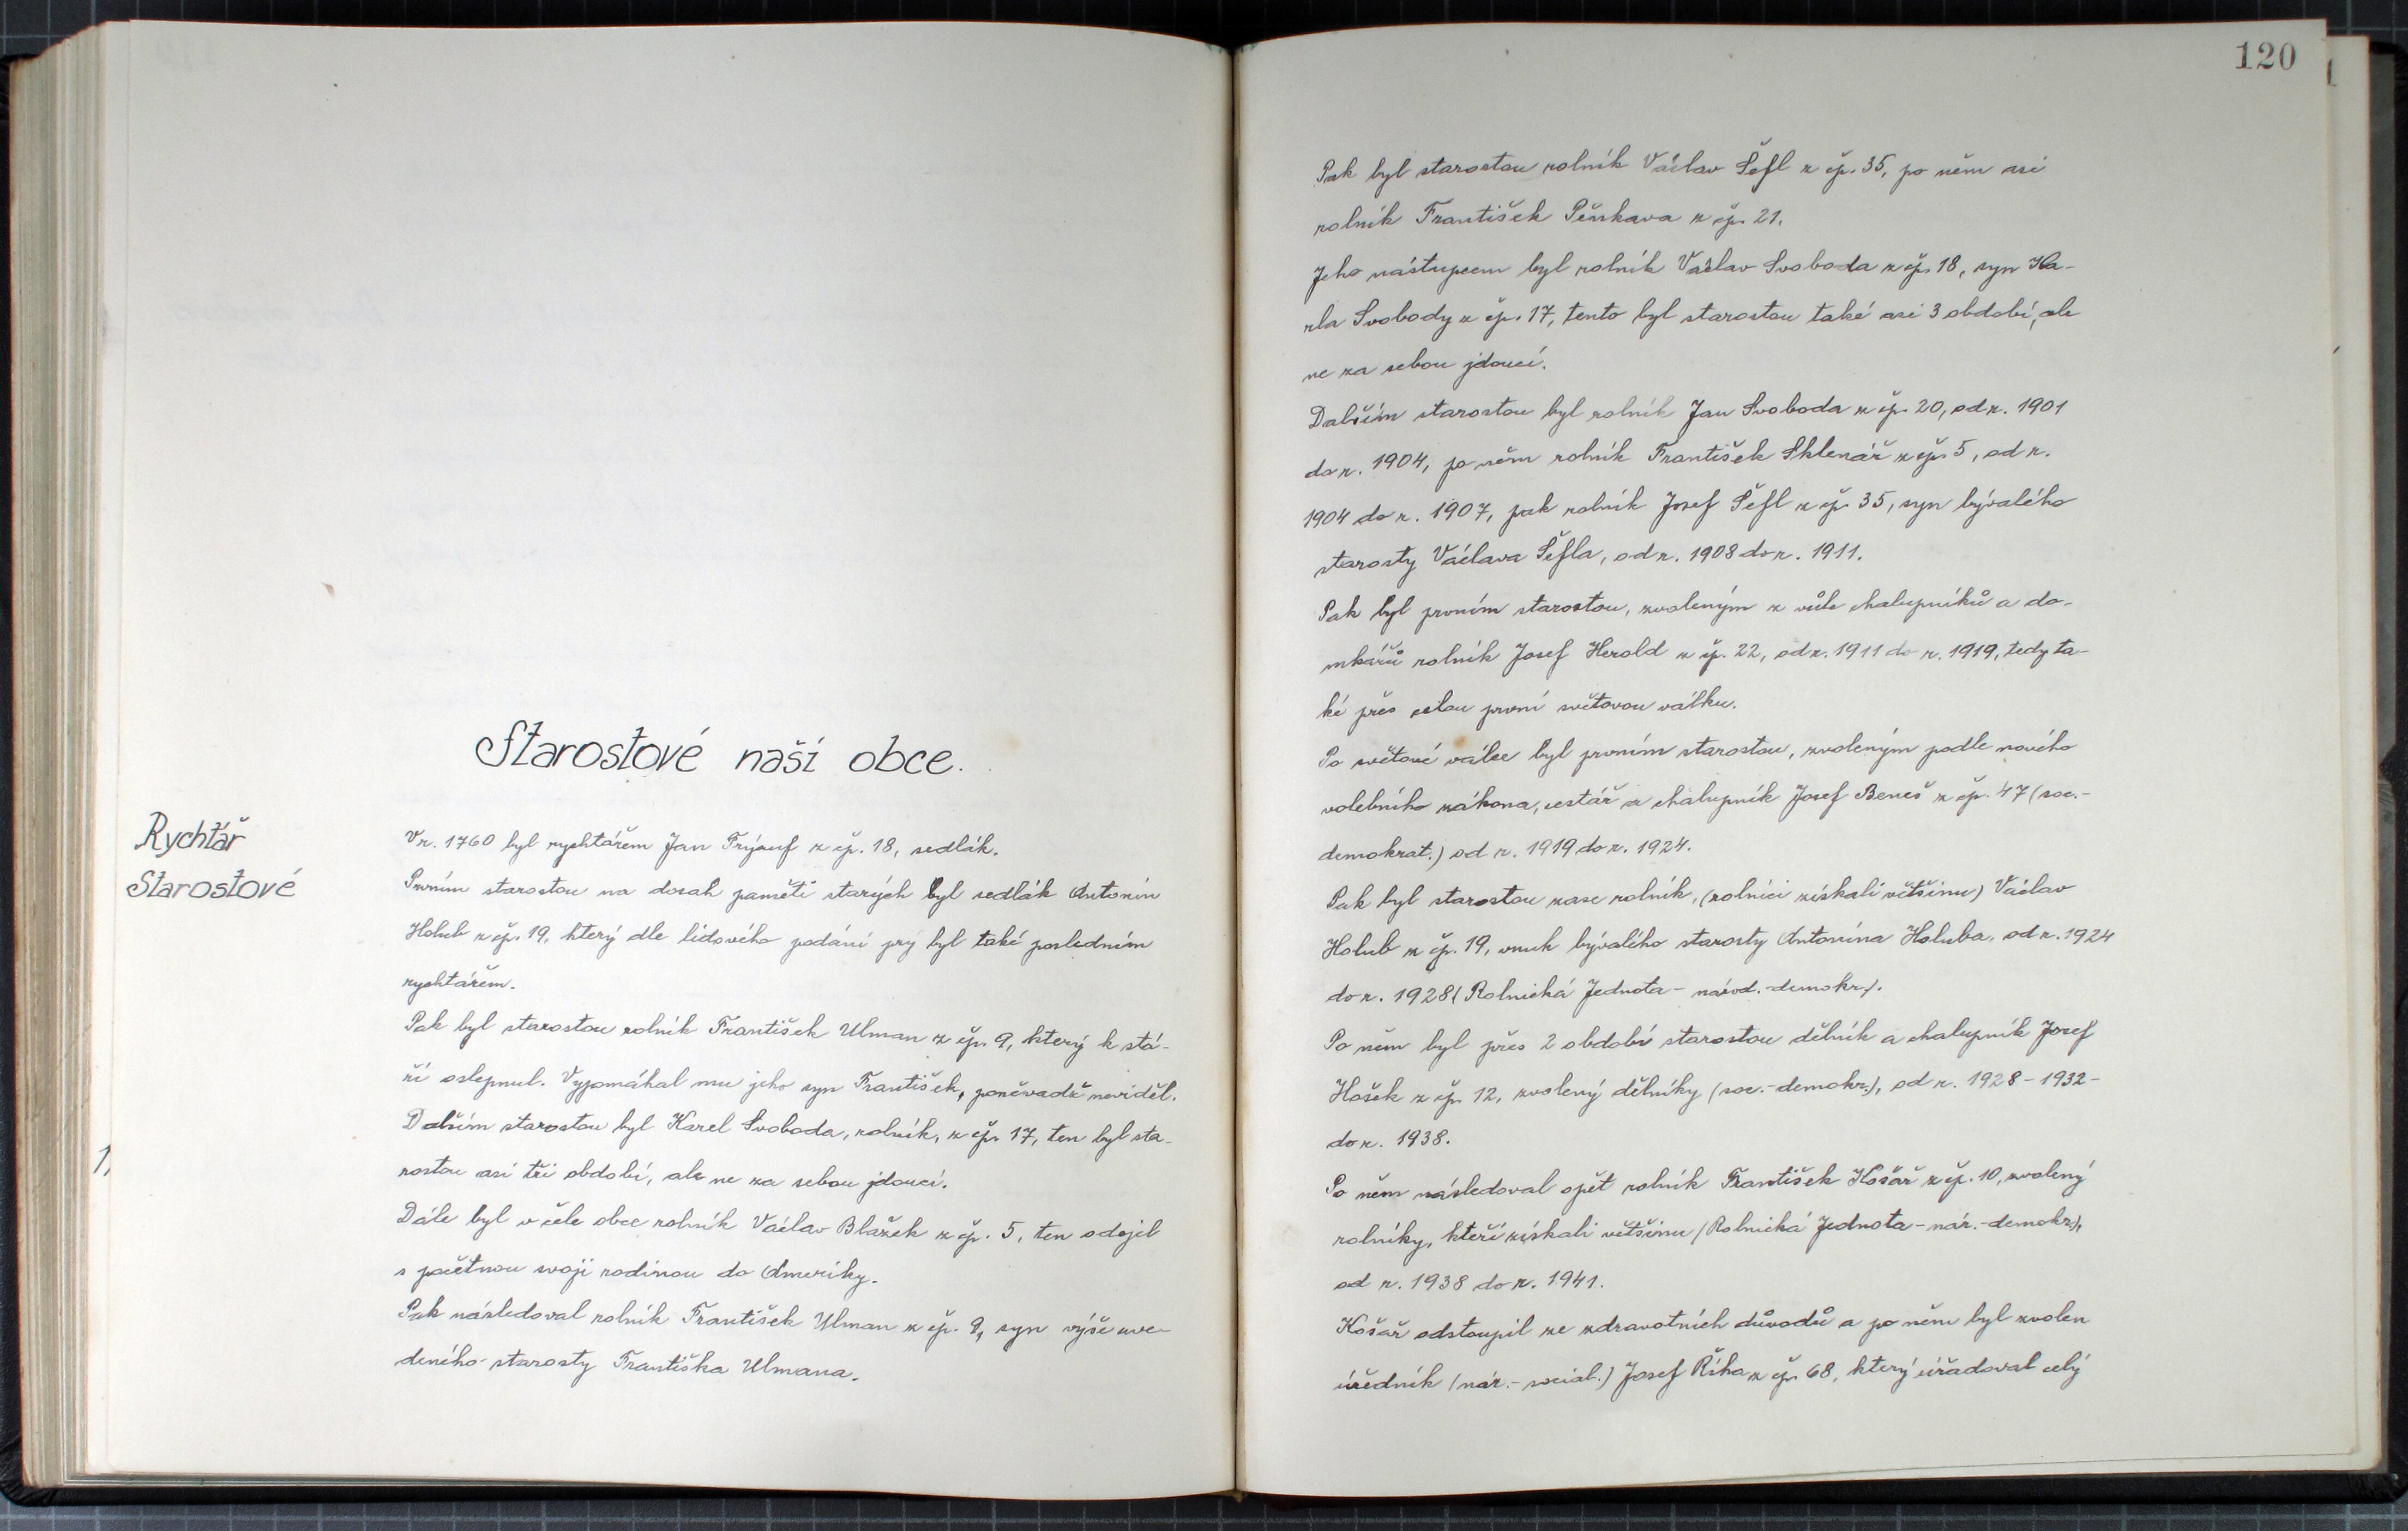 Starostové naší obce.
Rychtář
Starostové
V r. 1760 byl rychtářem Jan Trýouf z čp. 18, sedlák.
Prvním starostou na dosah paměti starých byl sedlák Antonín
Holub z čp. 19, který dle lidového podání prý byl také posledním
rychtářem.
Pak byl starostou rolník František Ulman z čp. 9, který k stá-
ří oslepnul. Vypomáhal mu jeho syn František, poněvadž neviděl.
Dalším starostou byl Karel Svoboda, rolník, z čp. 17, ten byl sta-
rostou asi tři období, ale ne za sebou jdoucí.
1,
Dále byl v čele obce rolník Václav Blažek z čp. 5, ten odejel
s početnou svojí rodinou do Ameriky.
Pak následoval rolník František Ulman z čp. 9, syn výše uve-
deného starosty Františka Ulmana.
120
Pak byl starostou rolník Václav Šefl z čp. 35, po něm asi
rolník František Pěnkava z čp. 21.
Jeho nástupcem byl rolník Václav Svoboda z čp. 18, syn Ka-
rla Svobody z čp. 17, tento byl starostou také asi 3 období, ale
ne za sebou jdoucí.
Dalším starostou byl rolník Jan Svoboda z čp. 20, od r. 1901
do r. 1904, po něm rolník František Sklenář z čp. 5, od r.
1904 do r. 1907, pak rolník Josef Šefl z čp. 35, syn bývalého
starosty Václava Šefla, od r. 1908 do r. 1911.
Pak byl prvním starostou, zvoleným z vůle chalupníků a do-
mkářů rolník Josef Herold z čp. 22, od r. 1911 do r. 1919, tedy ta-
ké přes celou první světovou válku.
Po světové válce byl prvním starostou, zvoleným podle nového
volebního zákona, cestář a chalupník Josef Beneš z čp. 47 (soc.-
demokrat.) od r. 1919 do r. 1924.
Pak byl starostou zase rolník, (rolníci získali většinu) Václav
Holub z čp. 19, vnuk bývalého starosty Antonína Holuba, od r. 1924
do r. 1928 (Rolnická Jednota - národ.-demokr.).
Po něm byl přes 2 období starostou dělník a chalupník Josef
Hošek z čp. 12, zvolený dělníky (soc.-demokr.), od r. 1928 - 1932 -
do r. 1938.
Po něm následoval opět rolník František Košař z čp. 10, zvolený
rolníky, kteří získali většinu (Rolnická Jednota - nár.-demokr.),
od r. 1938 do r. 1941.
Košař odstoupil ze zdravotních důvodů a po něm byl zvolen
úředník (nár.-social.) Josef Říha z čp. 68, který úřadoval celý